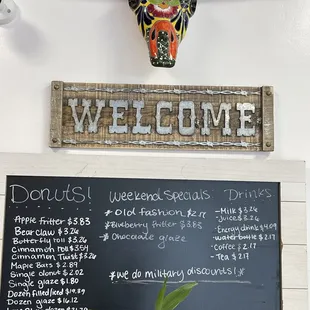 WELCOME
Donuts!
Apple fritter $3.83
Bear claw $3.24
Butterfly roll $3.24
Cinnamon roll $3.54
Cinnamon Twist $3.24
Maple Bars $2.89
Single donut $2.02
Single glaze $1.80
Dozen filled/iced $19.29
Dozen glaze $14.12
Weekend Specials
*Old fashion $2.17
*Blueberry fritter $3.83
*Chocolate glaze
*we do military discounts!*
Drinks
-Milk $3.24
-Juice $3.24
-Energy drink $4.09
-water bottle $2.17
-Coffee $2.17
-Tea $2.17